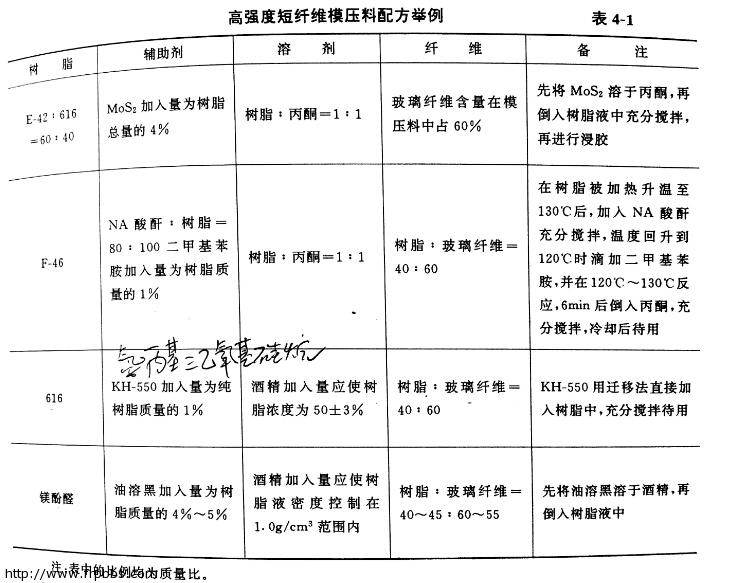 高强度短纤维模压料配方举例
表 4-1
树 脂
辅助剂
溶 剂
纤 维
备 注
E-42：616
=60：40
MoS₂ 加入量为树脂
总量的 4%
树脂：丙酮=1：1
玻璃纤维含量在模
压料中占 60%
先将 MoS₂ 溶于丙酮,再
倒入树脂液中充分搅拌,
再进行浸胶
F-46
NA 酸酐：树脂=
80：100 二甲基苯
胺加入量为树脂质
量的 1%
树脂：丙酮=1：1
树脂：玻璃纤维=
40：60
在树脂被加热升温至
130℃后,加入 NA 酸酐
充分搅拌,温度回升到
120℃时滴加二甲基苯
胺,并在120℃～130℃反
应,6min 后倒入丙酮,充
分搅拌,冷却后待用
氨丙基三乙氧基硅烷
616
KH-550 加入量为纯
树脂质量的 1%
酒精加入量应使树
脂浓度为 50±3%
树脂：玻璃纤维=
40：60
KH-550 用迁移法直接加
入树脂中,充分搅拌待用
镁酚醛
油溶黑加入量为树
脂质量的 4%～5%
酒精加入量应使树
脂液密度控制在
1.0g/cm³ 范围内
树脂：玻璃纤维=
40～45：60～55
先将油溶黑溶于酒精,再
倒入树脂液中
注：表中的比例均为质量比。